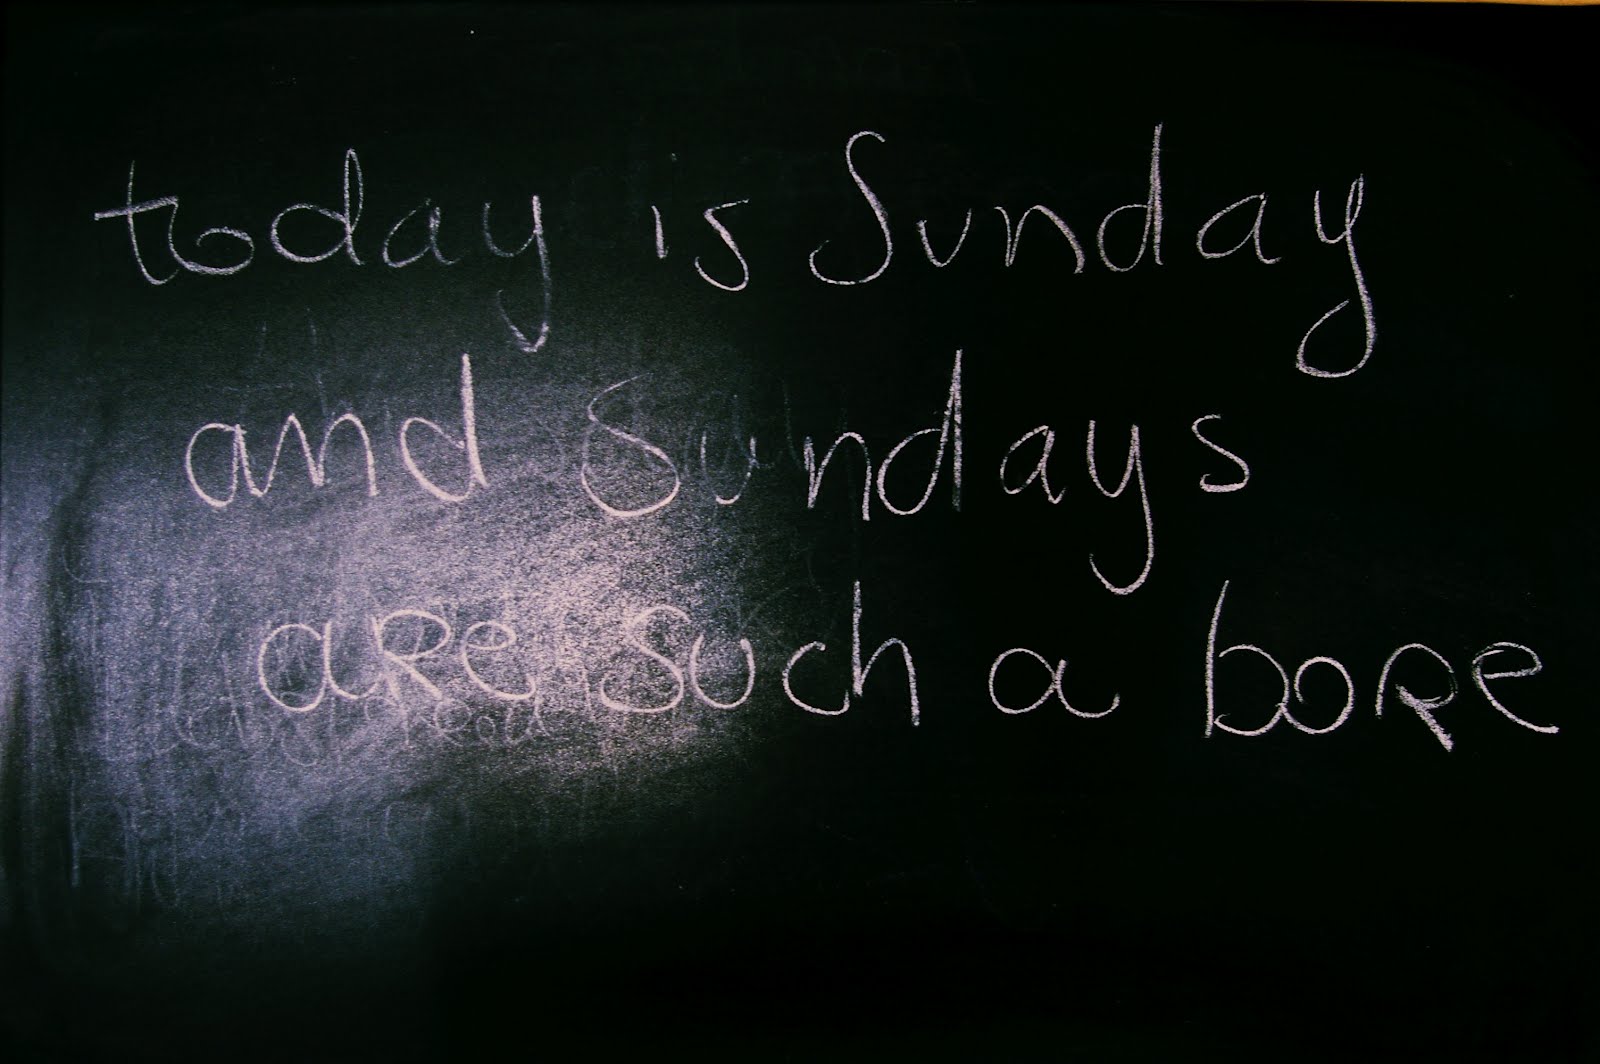 today is Sunday
and Sundays
are such a bore